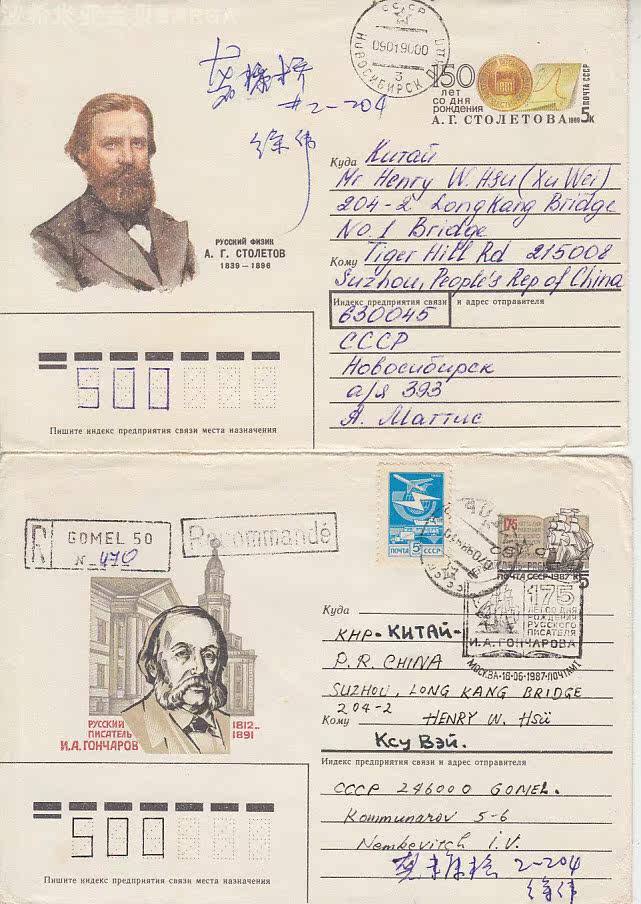 СССР
09019000
НОВОСИБИРСК
3
150
ЛЕТ
СО ДНЯ
РОЖДЕНИЯ
А. Г. СТОЛЕТОВА
1989
5К
ПОЧТА СССР
#2-204
徐伟
РУССКИЙ ФИЗИК
А. Г. СТОЛЕТОВ
1839—1896
Куда Китай
Mr Henry W. Hsu (Xu Wei)
204-2 LongKang Bridge
No. 1 Bridge
Кому Tiger Hill Rd 215008
Suzhou, People's Rep of China
Индекс предприятия связи и адрес отправителя
630045
СССР
Новосибирск
а/я 393
Я. Маттис
500
Пишите индекс предприятия связи места назначения
R GOMEL 50
N 470
Recommandé
ПОЧТА 5 СССР
175
ПОЧТА СССР 1987 К5
175
ЛЕТ СО ДНЯ
РОЖДЕНИЯ
РУССКОГО
ПИСАТЕЛЯ
И.А. ГОНЧАРОВА
МОСКВА-18-06-1987-ПОЧТАМТ
РУССКИЙ
ПИСАТЕЛЬ
И.А.ГОНЧАРОВ
1812-
1891
Куда
КНР-КИТАЙ-
P.R. CHINA
SUZHOU, LONG KANG BRIDGE
204-2
Кому HENRY W. HSÜ
Ксу Вэй.
Индекс предприятия связи и адрес отправителя
СССР 246000 GOMEL.
Kommunarov 5-6
Nemkevitch I.V.
2-204
徐伟
500
Пишите индекс предприятия связи места назначения